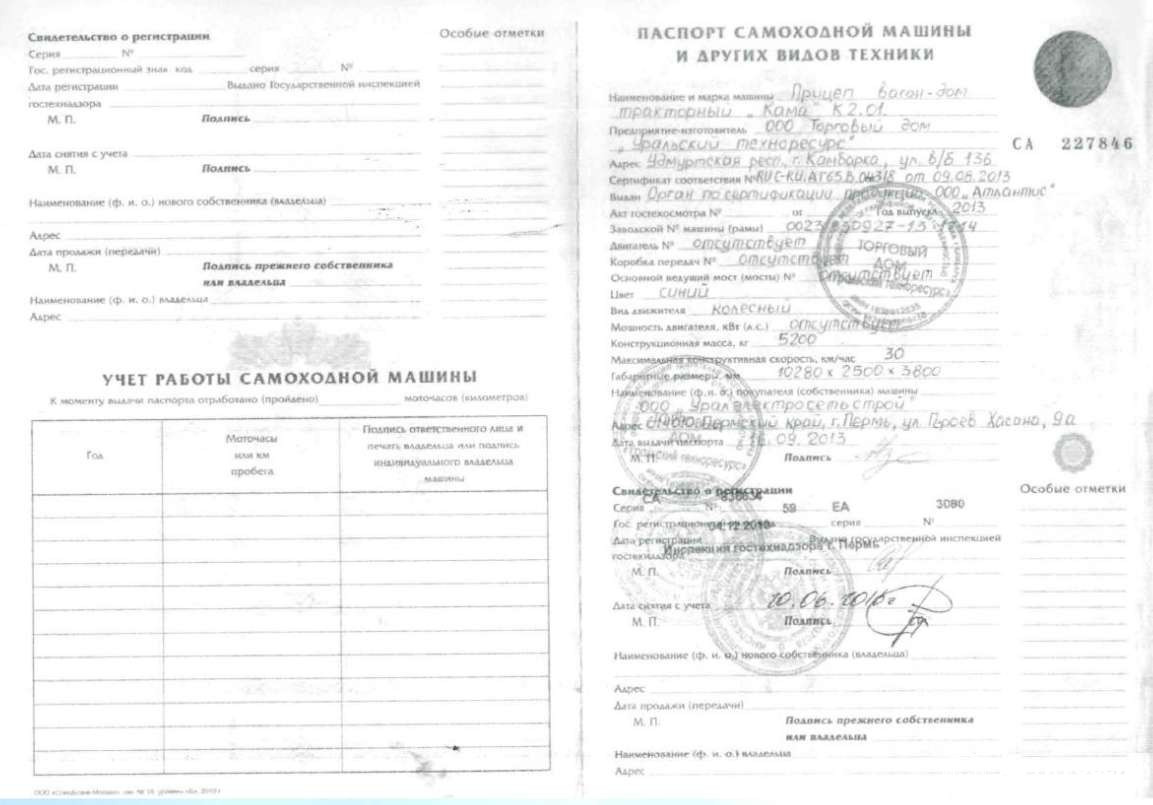 Свидетельство о регистрации
Особые отметки
Серия № 
Гос. регистрационный знак код серия №
Дата регистрации Выдано Государственной инспекцией
гостехнадзора
М. П. Подпись
Дата снятия с учета
М. П. Подпись
Наименование (ф. и. о.) нового собственника (владельца)
Адрес
Дата продажи (передачи)
М. П. Подпись прежнего собственника
или владельца
Наименование (ф. и. о.) владельца
Адрес
УЧЕТ РАБОТЫ САМОХОДНОЙ МАШИНЫ
К моменту выдачи паспорта отработано (пройдено) моточасов (километров)
Год
Моточасы
или км
пробега
Подпись ответственного лица и
печать владельца или подпись
индивидуального владельца
машины
ПАСПОРТ САМОХОДНОЙ МАШИНЫ
И ДРУГИХ ВИДОВ ТЕХНИКИ
Наименование и марка машины Прицеп вагон-дом
тракторный "Кама" К 2.01.
Предприятие-изготовитель ООО Торговый дом
"Уральский техноресурс"
СА 227846
Адрес Удмуртская респ., г. Камбарка, ул. В/Б 136
Сертификат соответствия № RU C-RU.АГ65.В.04318 от 09.08.2013
Выдан Орган по сертификации продукции ООО "Атлантис"
Акт гостехосмотра № от Год выпуска 2013
Заводской № машины (рамы) 0023
Двигатель № отсутствует
Коробка передач № отсутствует
Основной ведущий мост (мосты) № отсутствует
Цвет синий
Вид движителя колесный
Мощность двигателя, кВт (л.с.) отсутствует
Конструкционная масса, кг 5200
Максимальная конструктивная скорость, км/час 30
Габаритные размеры, мм 10280 х 2500 х 3800
Наименование (ф. и. о.) покупателя (собственника) машины
ООО "Уралэлектросетьстрой"
Адрес Пермский край, г. Пермь, ул. Героев Хасана, 9а
Дата выдачи паспорта 16.09.2013
М. П. Подпись
ТОРГОВЫЙ
ДОМ
"Уральский техноресурс"
Свидетельство о регистрации
Особые отметки
Серия СА № 836634
Гос. регистрационный 59 ЕА серия № 3080
Дата регистрации 04.12.2013 Выдано государственной инспекцией
гостехнадзора Инспекция гостехнадзора г. Пермь
М. П. Подпись
Дата снятия с учета 10.06.2016г
М. П. Подпись
Наименование (ф. и. о.) нового собственника (владельца)
Адрес
Дата продажи (передачи)
М. П. Подпись прежнего собственника
или владельца
Наименование (ф. и. о.) владельца
Адрес